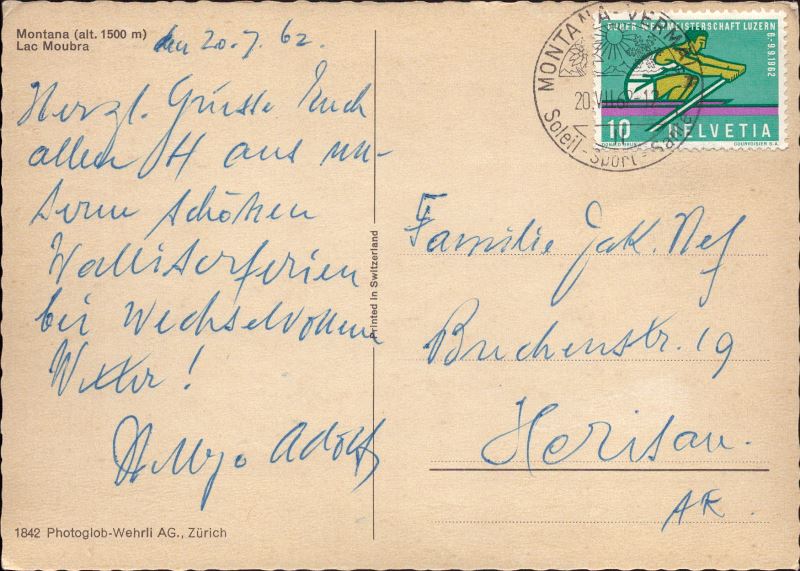 Montana (alt. 1500 m)
Lac Moubra
den 20.7.62.
Herzl. Grüsse Euch
allen 4 aus un-
seren schönen
Walliserferien
bei Wechselvollem
Wetter!
Adolf
1842 Photoglob-Wehrli AG., Zürich
Printed in Switzerland
MONTANA-VERMALA
20.VII.62-12
Soleil-Sport-Santé
RUDER WELTMEISTERSCHAFT LUZERN
6-9.9.1962
10 HELVETIA
DONALD BRUN COURVOISIER S.A.
Familie Jak. Nef
Buchenstr. 19
Herisau.
AR.